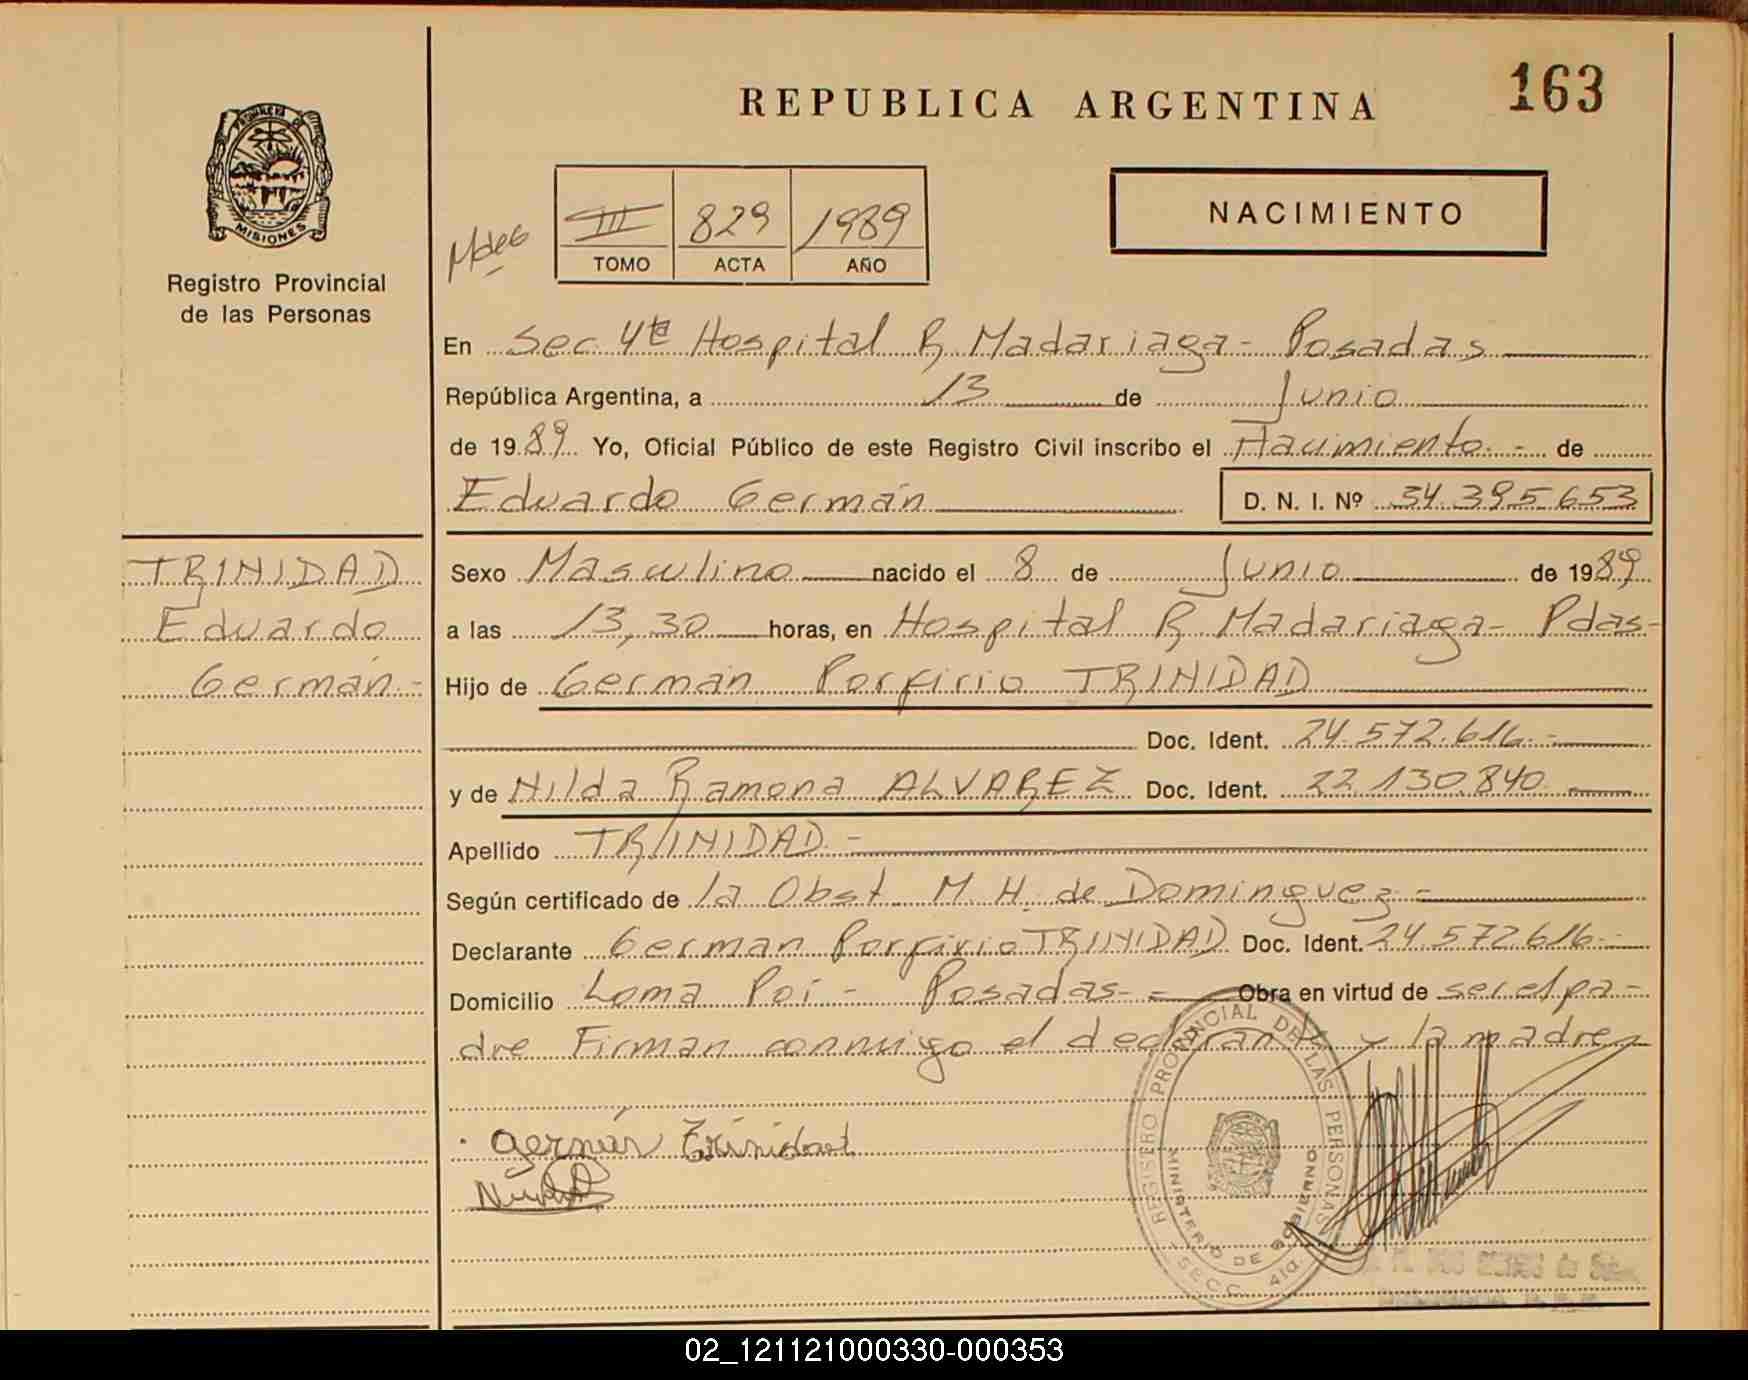 163
REPUBLICA ARGENTINA
PROVINCIA DE
MISIONES
Registro Provincial
de las Personas
III 829 1989
TOMO ACTA AÑO
NACIMIENTO
En Sec 4ta Hospital R. Madariaga - Posadas
República Argentina, a 13 de Junio
de 1989. Yo, Oficial Público de este Registro Civil inscribo el Nacimiento.- de
Eduardo Germán D. N. I. Nº 34.395.653
TRINIDAD
Eduardo
Germán.-
Sexo Masculino nacido el 8 de Junio de 1989
a las 13,30 horas, en Hospital R. Madariaga - Pdas-
Hijo de German Porfirio TRINIDAD
Doc. Ident. 24.572.616.-
y de Nilda Ramona ALVAREZ Doc. Ident. 22.130.840.
Apellido TRINIDAD.-
Según certificado de la Obst. M. H. de Dominguez.-
Declarante German Porfirio TRINIDAD Doc. Ident. 24.572.616.-
Domicilio Loma Poi - Posadas.- Obra en virtud de ser el pa-
dre Firman conmigo el declarante y la madre
German Trinidad
REGISTRO PROVINCIAL DE LAS PERSONAS
MINISTERIO DE GOBIERNO
SECC. 4ta.
02_121121000330-000353